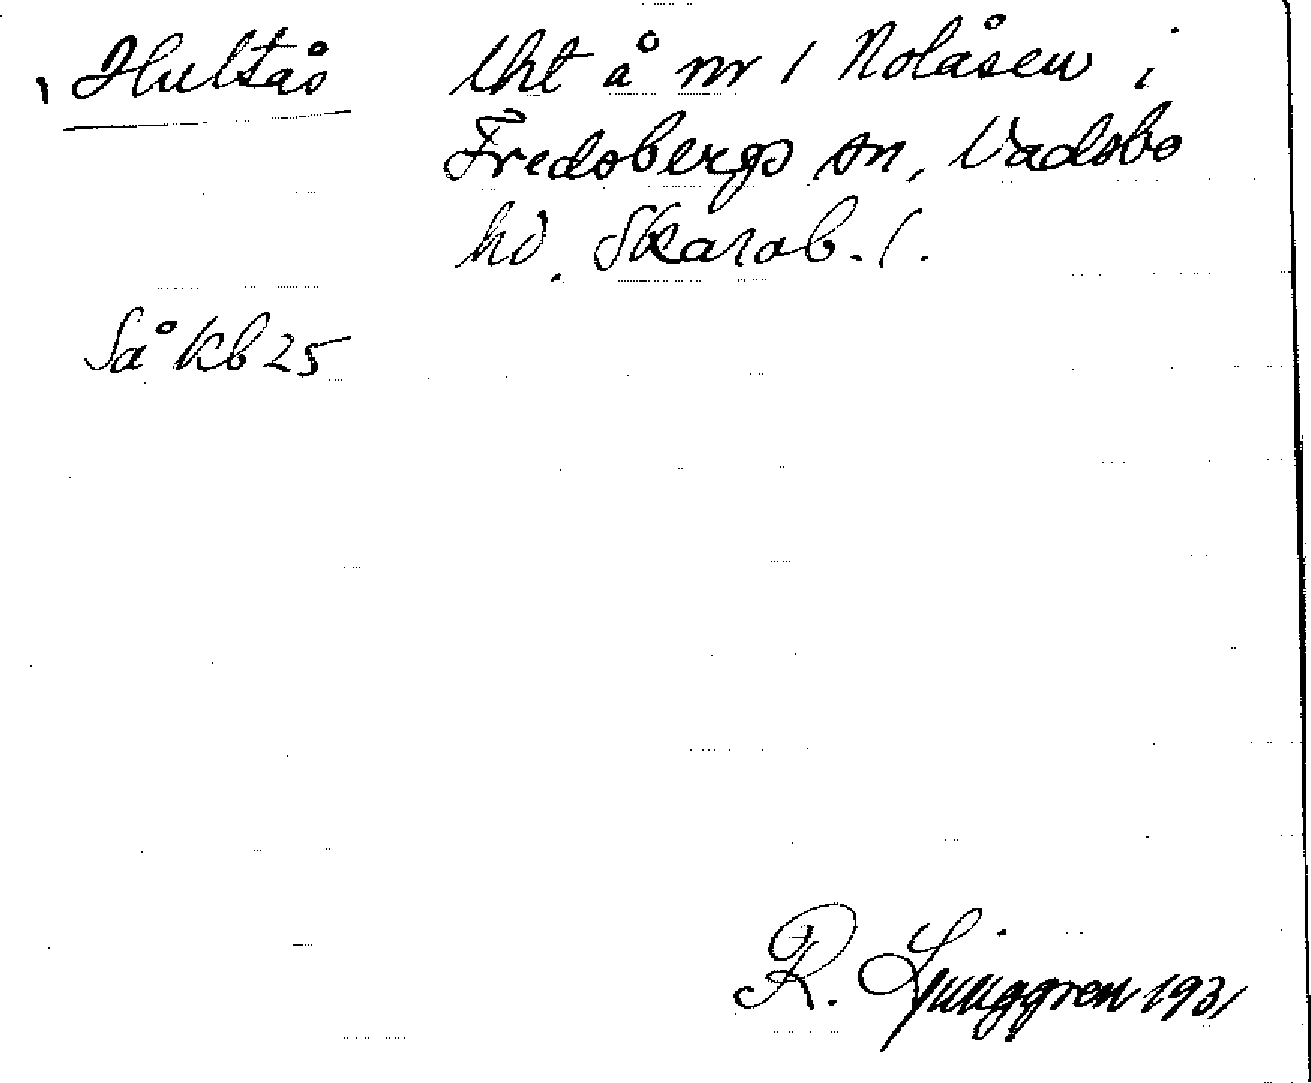 Hultås lht å nr 1 Nolåsen i
Fredsbergs sn, Vadsbo
hd. Skarab. l.
Så kb 25
R. Ljunggren 1931